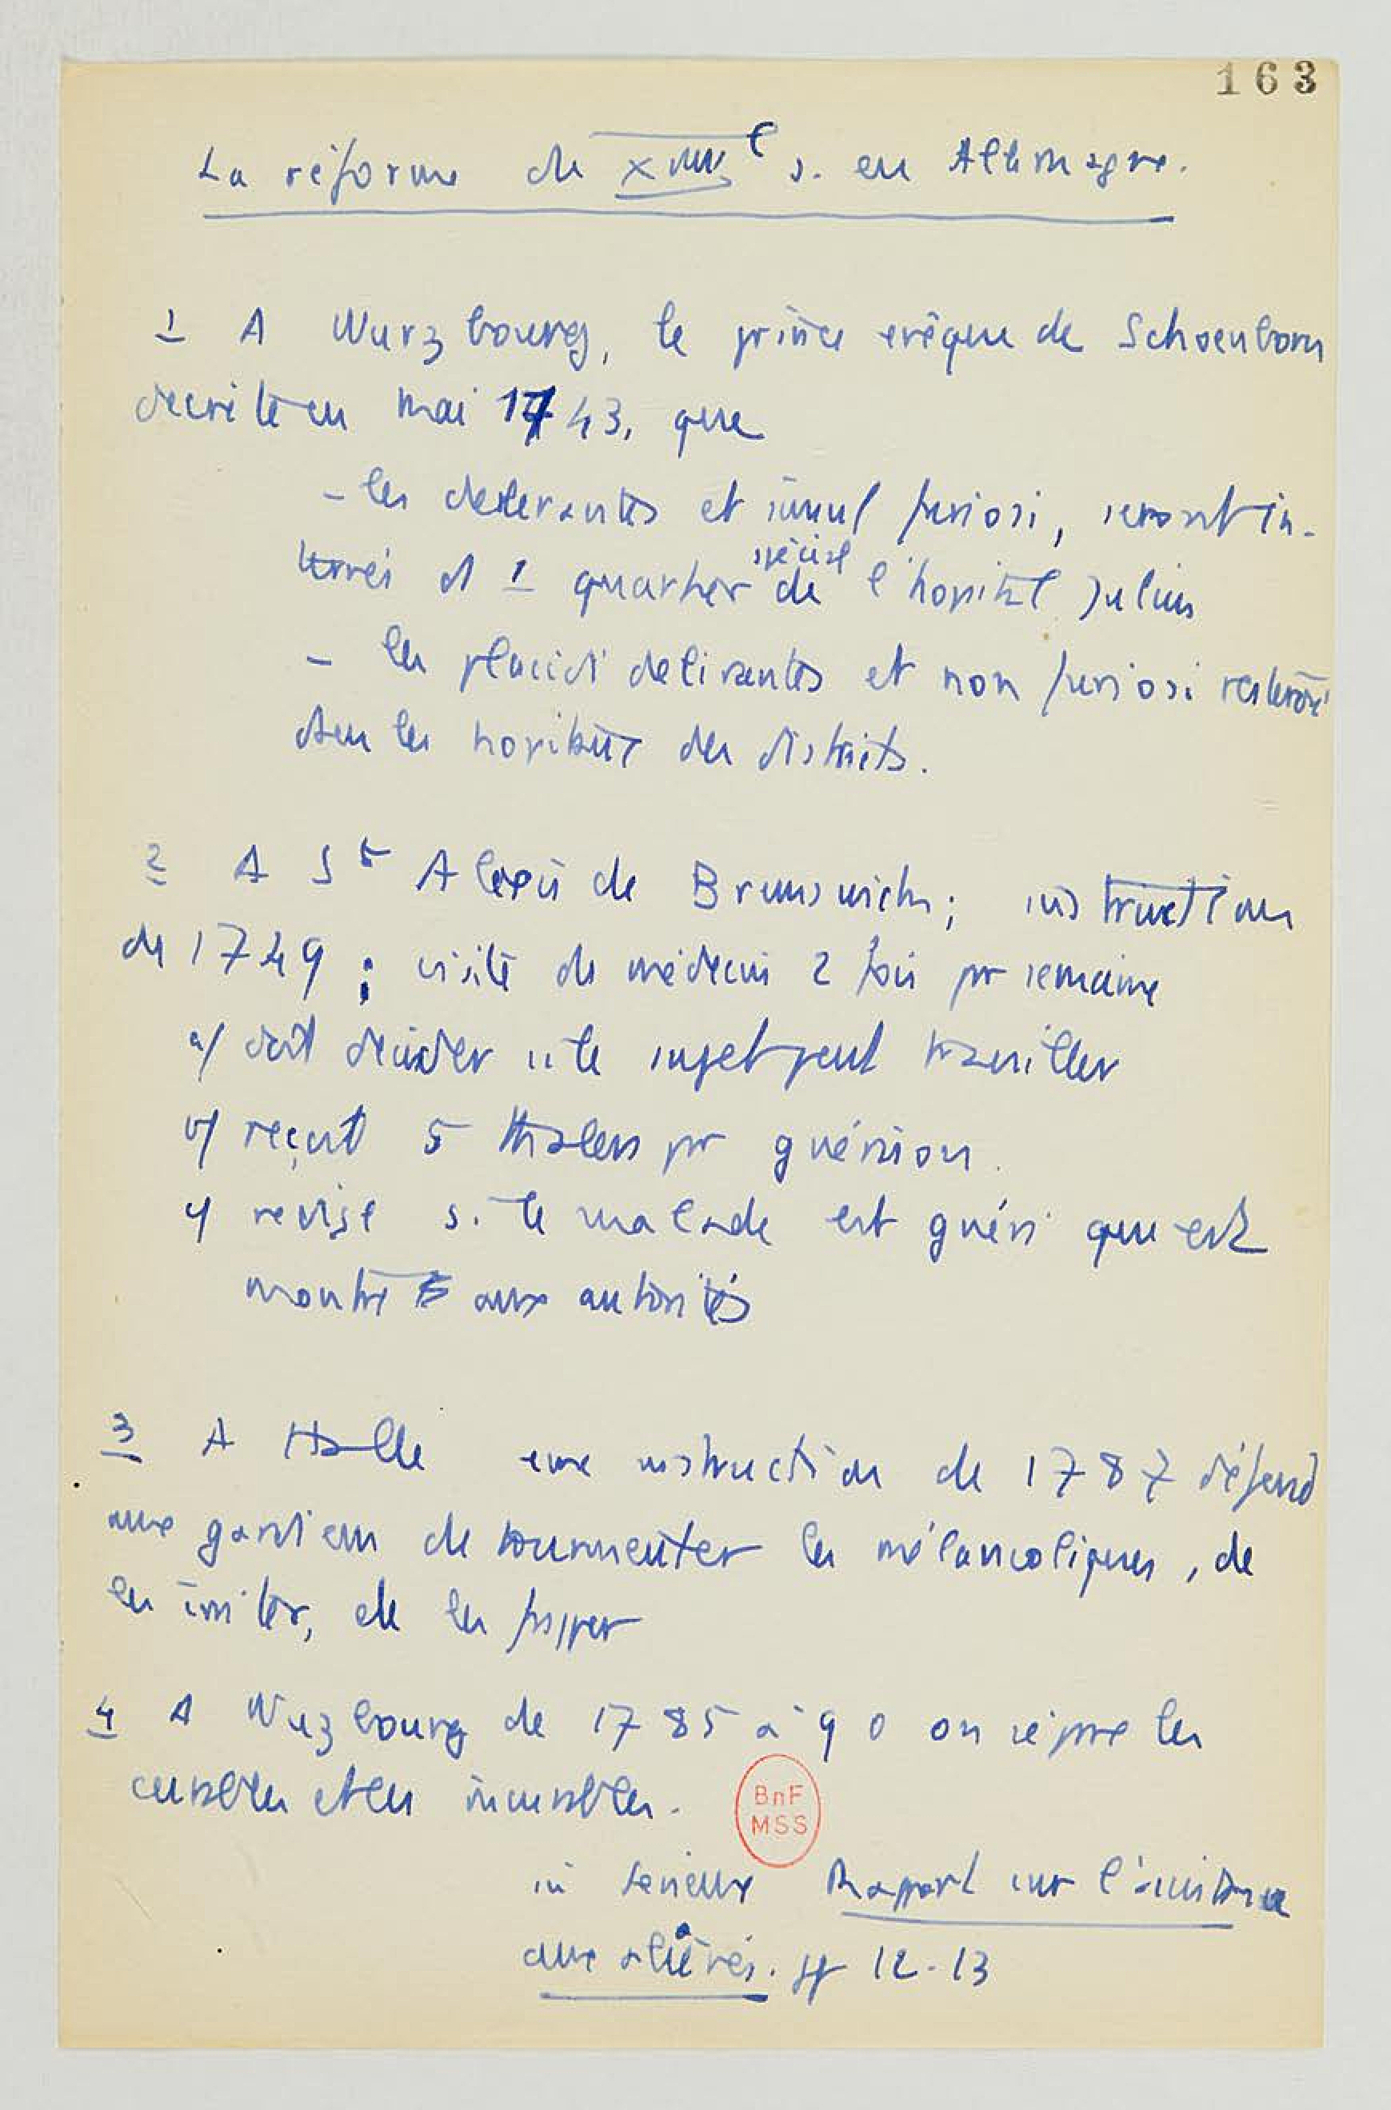 163
La réforme du XVIIIe s. en Allemagne.
1 A Wurzbourg, le prince evêque de Schoenborn
decrète en mai 1743, que
- les delirantes et simul furiosi, seront in-
ternés ds 1 quartier spécial de l'hopital Julius
- les placidi delirantes et non furiosi resteront
dans les hopitaux des districts.
2 A St Alexis de Brunswick; instructions
de 1749 : visite du médecin 2 fois par semaine
a/ doit décider si le sujet peut travailler
b/ reçoit 5 thalers par guérison.
c/ si le malade est guéri
montré aux autorités
3 A Halle une instruction de 1787 défend
aux gardiens de tourmenter les mélancoliques, de
les irriter, de les frapper
4 A Wuzbourg de 1785 à 90 on sépare les
curables et les incurables.
BnF
MSS
in Serieux Rapport sur l'assistance
aux aliénés. pp 12-13